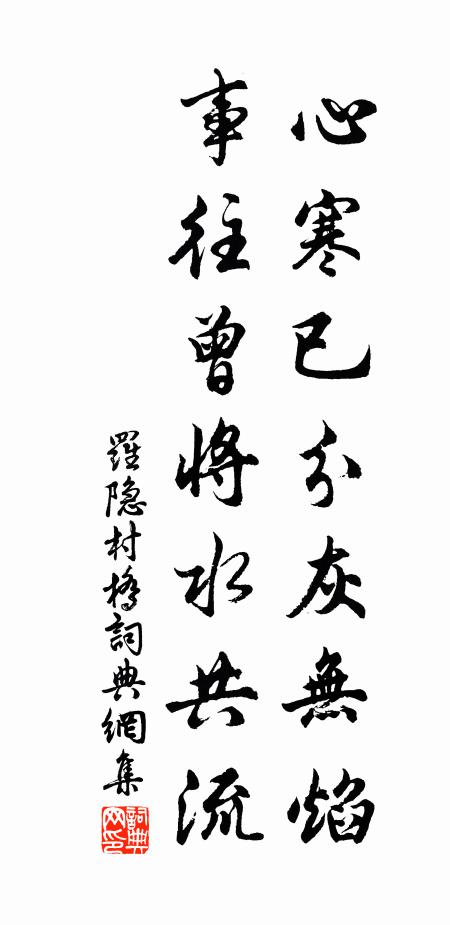 心寒已分灰無焰
事往曾將水共流
羅隐村橋詞典網集
詞典网印